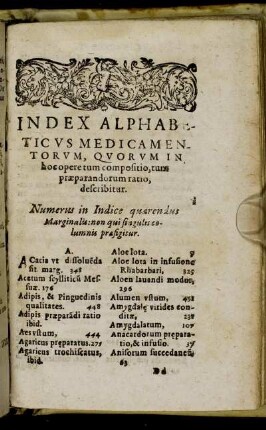 INDEX ALPHABE-
TICVS MEDICAMEN-
TORVM, QVORVM IN
hoc opere tum compositio, tum
præparandorum ratio,
describitur.
Numerus in Indice quærendus
Marginalis: non qui singulis co-
lumnis præfigitur.
A.
Acacia vt dissoluēda
sit marg. 348
Acetum scylliticū Mes-
suæ. 176
Adipis, & Pinguedinis
qualitates. 448
Adipis præparādi ratio
ibid.
Æs vstum, 444
Agaricus præparatus. 277
Agaricus trochiscatus,
ibid.
Aloe lota. 9
Aloe lota in infusione
Rhabarbari, 325
Aloen lauandi modus,
296
Alumen vstum, 452
Amygdalę virides con-
ditæ, 238
Amygdalatum, 107
Anacardorum prepara-
tio, & infusio. 37
Anisorum succedanea,
63
Dd